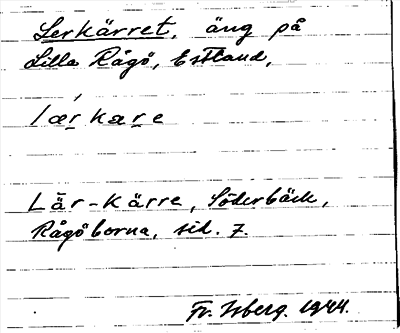 Lerkärret, äng på
Lilla Rågö, Estland,
lærkære
Lär-Kärre, Söderbäck,
Rågöborna, sid. 7.
Fr. Isberg. 1944.